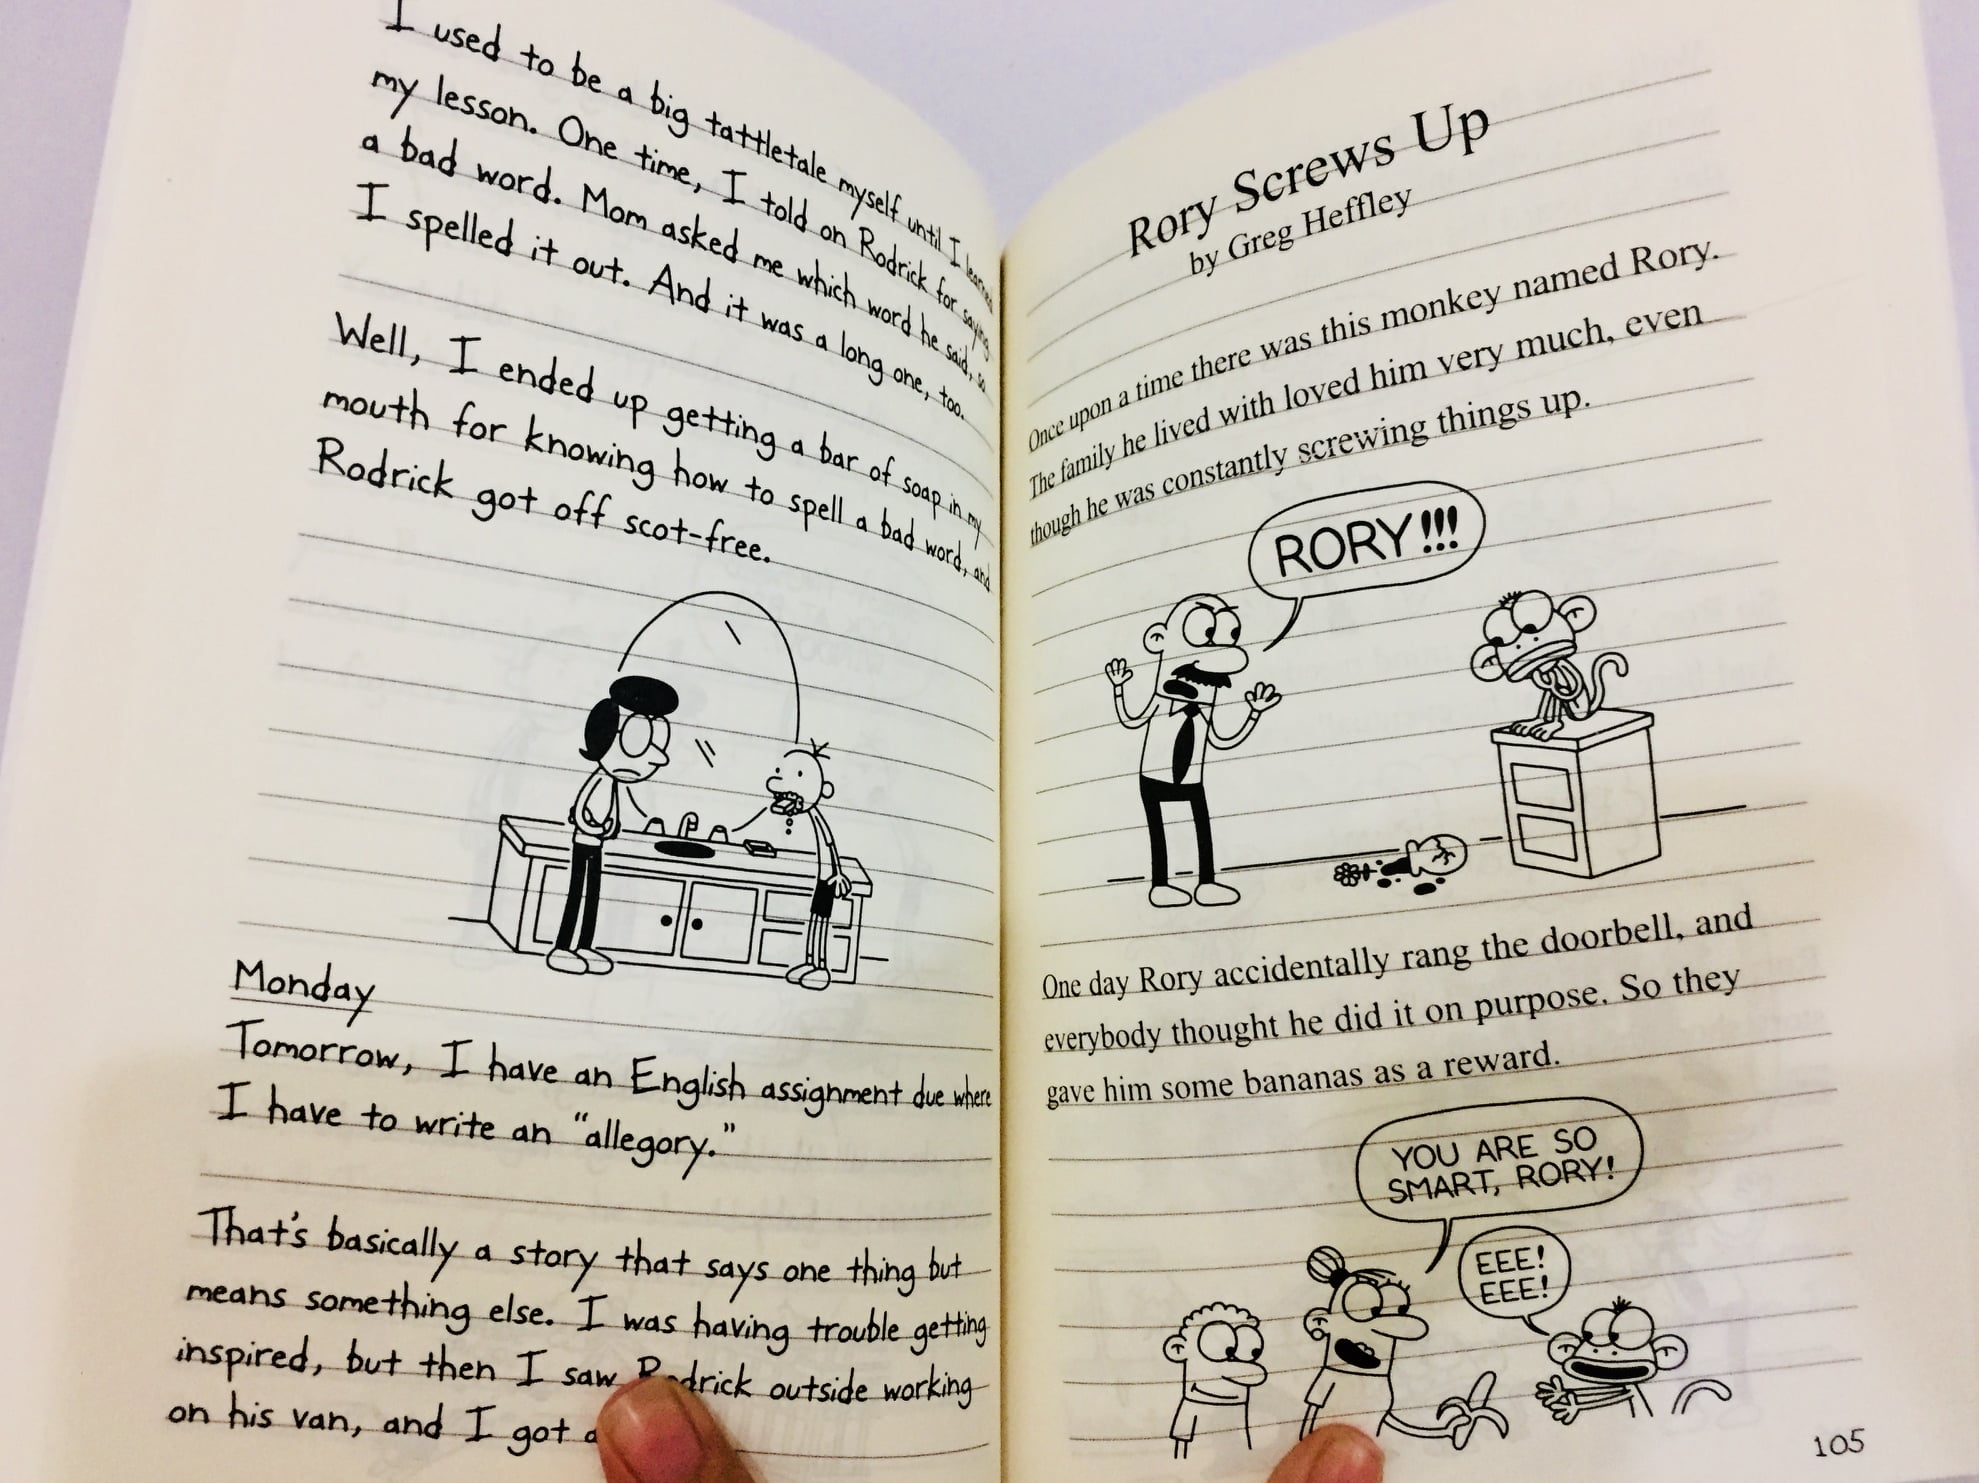 I used to be a big tattletale myself until I learned
my lesson. One time, I told on Rodrick for saying
a bad word. Mom asked me which word he said, so
I spelled it out. And it was a long one, too.
Well, I ended up getting a bar of soap in my
mouth for knowing how to spell a bad word, and
Rodrick got off scot-free.
Monday
Tomorrow, I have an English assignment due where
I have to write an "allegory."
That's basically a story that says one thing but
means something else. I was having trouble getting
inspired, but then I saw Rodrick outside working
on his van, and I got a
Rory Screws Up
by Greg Heffley
Once upon a time there was this monkey named Rory.
The family he lived with loved him very much, even
though he was constantly screwing things up.
RORY!!!
One day Rory accidentally rang the doorbell, and
everybody thought he did it on purpose. So they
gave him some bananas as a reward.
YOU ARE SO
SMART, RORY!
EEE!
EEE!
105